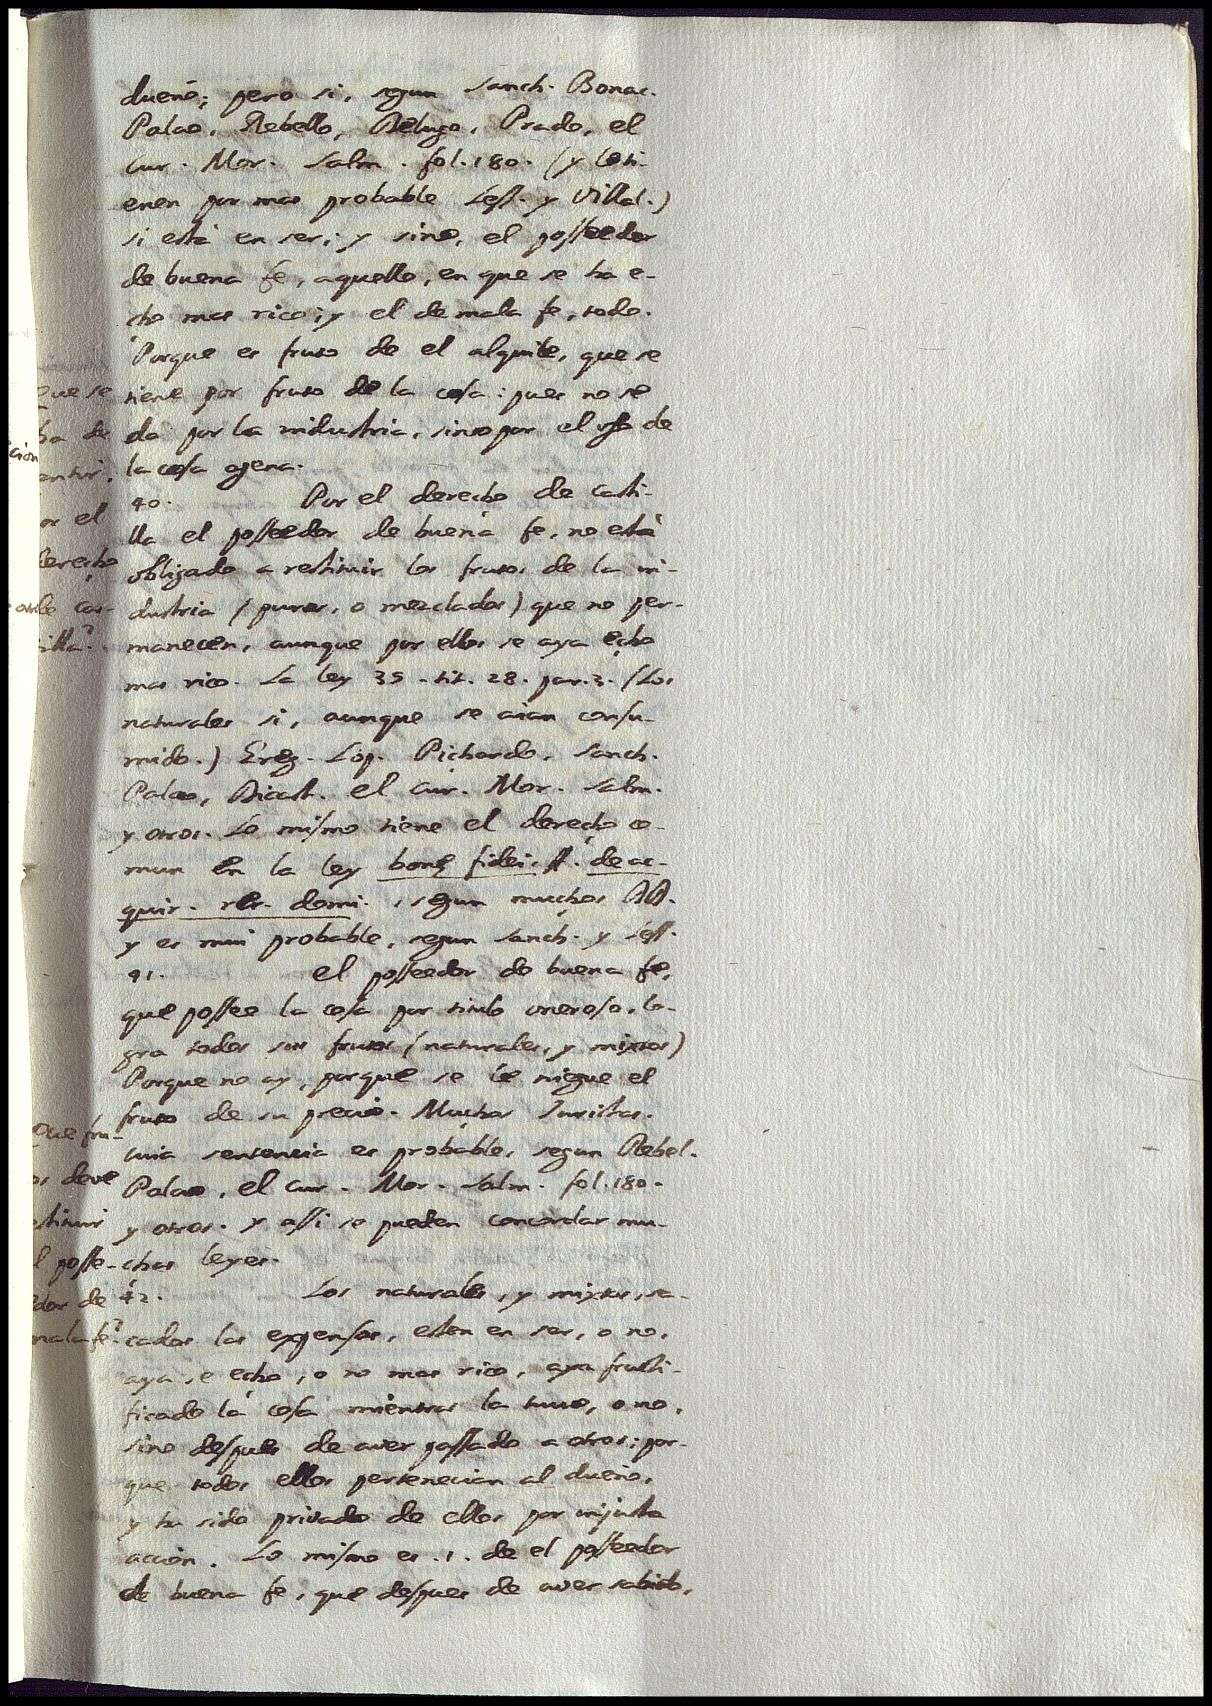 dueño; pero si, segun Sanch. Bonac.
Palao, Rebello, Delugo, Prado, el
Cur. Mor. Salm. fol. 180. (y lo ti-
enen por mas probable Less. y Villal.)
si está en ser; y sino, el posseedor
de buena fe, aquello, en que se ha e-
cho mas rico; y el de mala fe, todo.
Porque es fruto de el alquile, que se
tiene por fruto de la cosa: pues no se
da por la industria, sino por el uso de
la cosa agena.
40. Por el derecho de Casti-
lla el posseedor de buena fe, no está
obligado a restituir los frutos de la in-
dustria (puros, o mezclados) que no per-
manecen, aunque por ellos se aya echo
mas rico. La ley 39. tit. 28. par. 3. (Los
naturales si, aunque se aian consu-
mido.) Greg. Lop. Pichardo, Sanch.
Palao, Dicast. el Cur. Mor. Salm.
y otros. Lo mismo tiene el derecho co-
mun en la ley bonę fidei. ff. de ac-
quir. rer. domi., segun muchos DD.
y es mui probable, segun Sanch. y Less.
41. El posseedor de buena fe,
que possee la cosa por titulo oneroso, lo-
gra todos sus frutos (naturales, y mixtos)
Porque no ay, porque se le niegue el
fruto de su precio. Muchos Juristas.
cuia sentencia es probable, segun Rebel.
Palao, el Cur. Mor. Salm. fol. 180.
y otros. y assi se pueden concordar mu-
chas leyes.
42. Los naturales, y mixtos, sa-
cados las expensas, esten en ser, o no,
aya se echo, o no mas rico, aya fructi-
ficado la cosa mientras la tuvo, o no,
sino despues de aver passado a otros; por-
que todos ellos pertenecian al dueño,
y ha sido privado de ellos por injusta
accion. Lo mismo es. 1. de el posseedor
de buena fe, que despues de aver sabido,
que se
ha de
or el
derecho
de Cas-
tilla?
Que fru-
os deve
estituir
l posse-
edor de
mala fe?